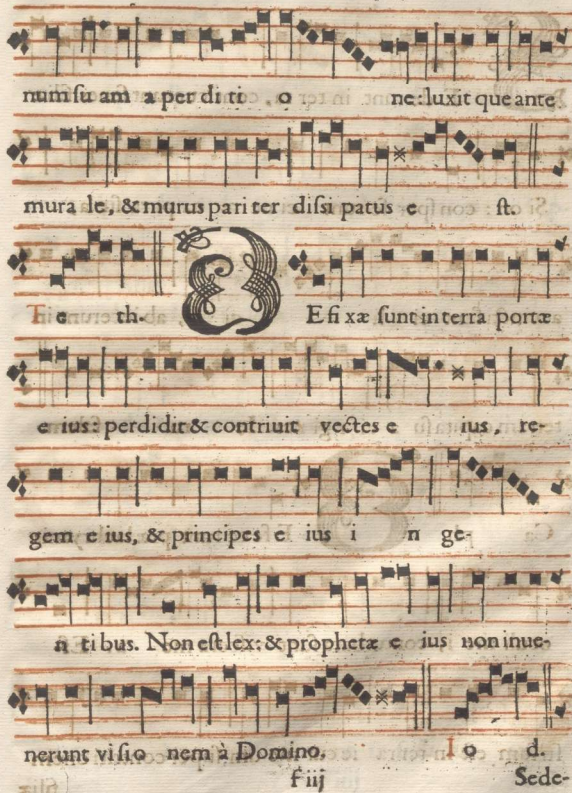 num ſu am a per di ti o ne: luxit que ante
mura le, & murus pari ter diſsi patus e ſt.
T e th. D E fi xæ ſunt in terra portæ
e ius: perdidit & contriuit vectes e ius, re-
gem e ius, & principes e ius i n ge-
n ti bus. Non eſt lex: & prophetæ e ius non inue-
nerunt vi ſi o nem à Domino. I o d.
f iij Sede-